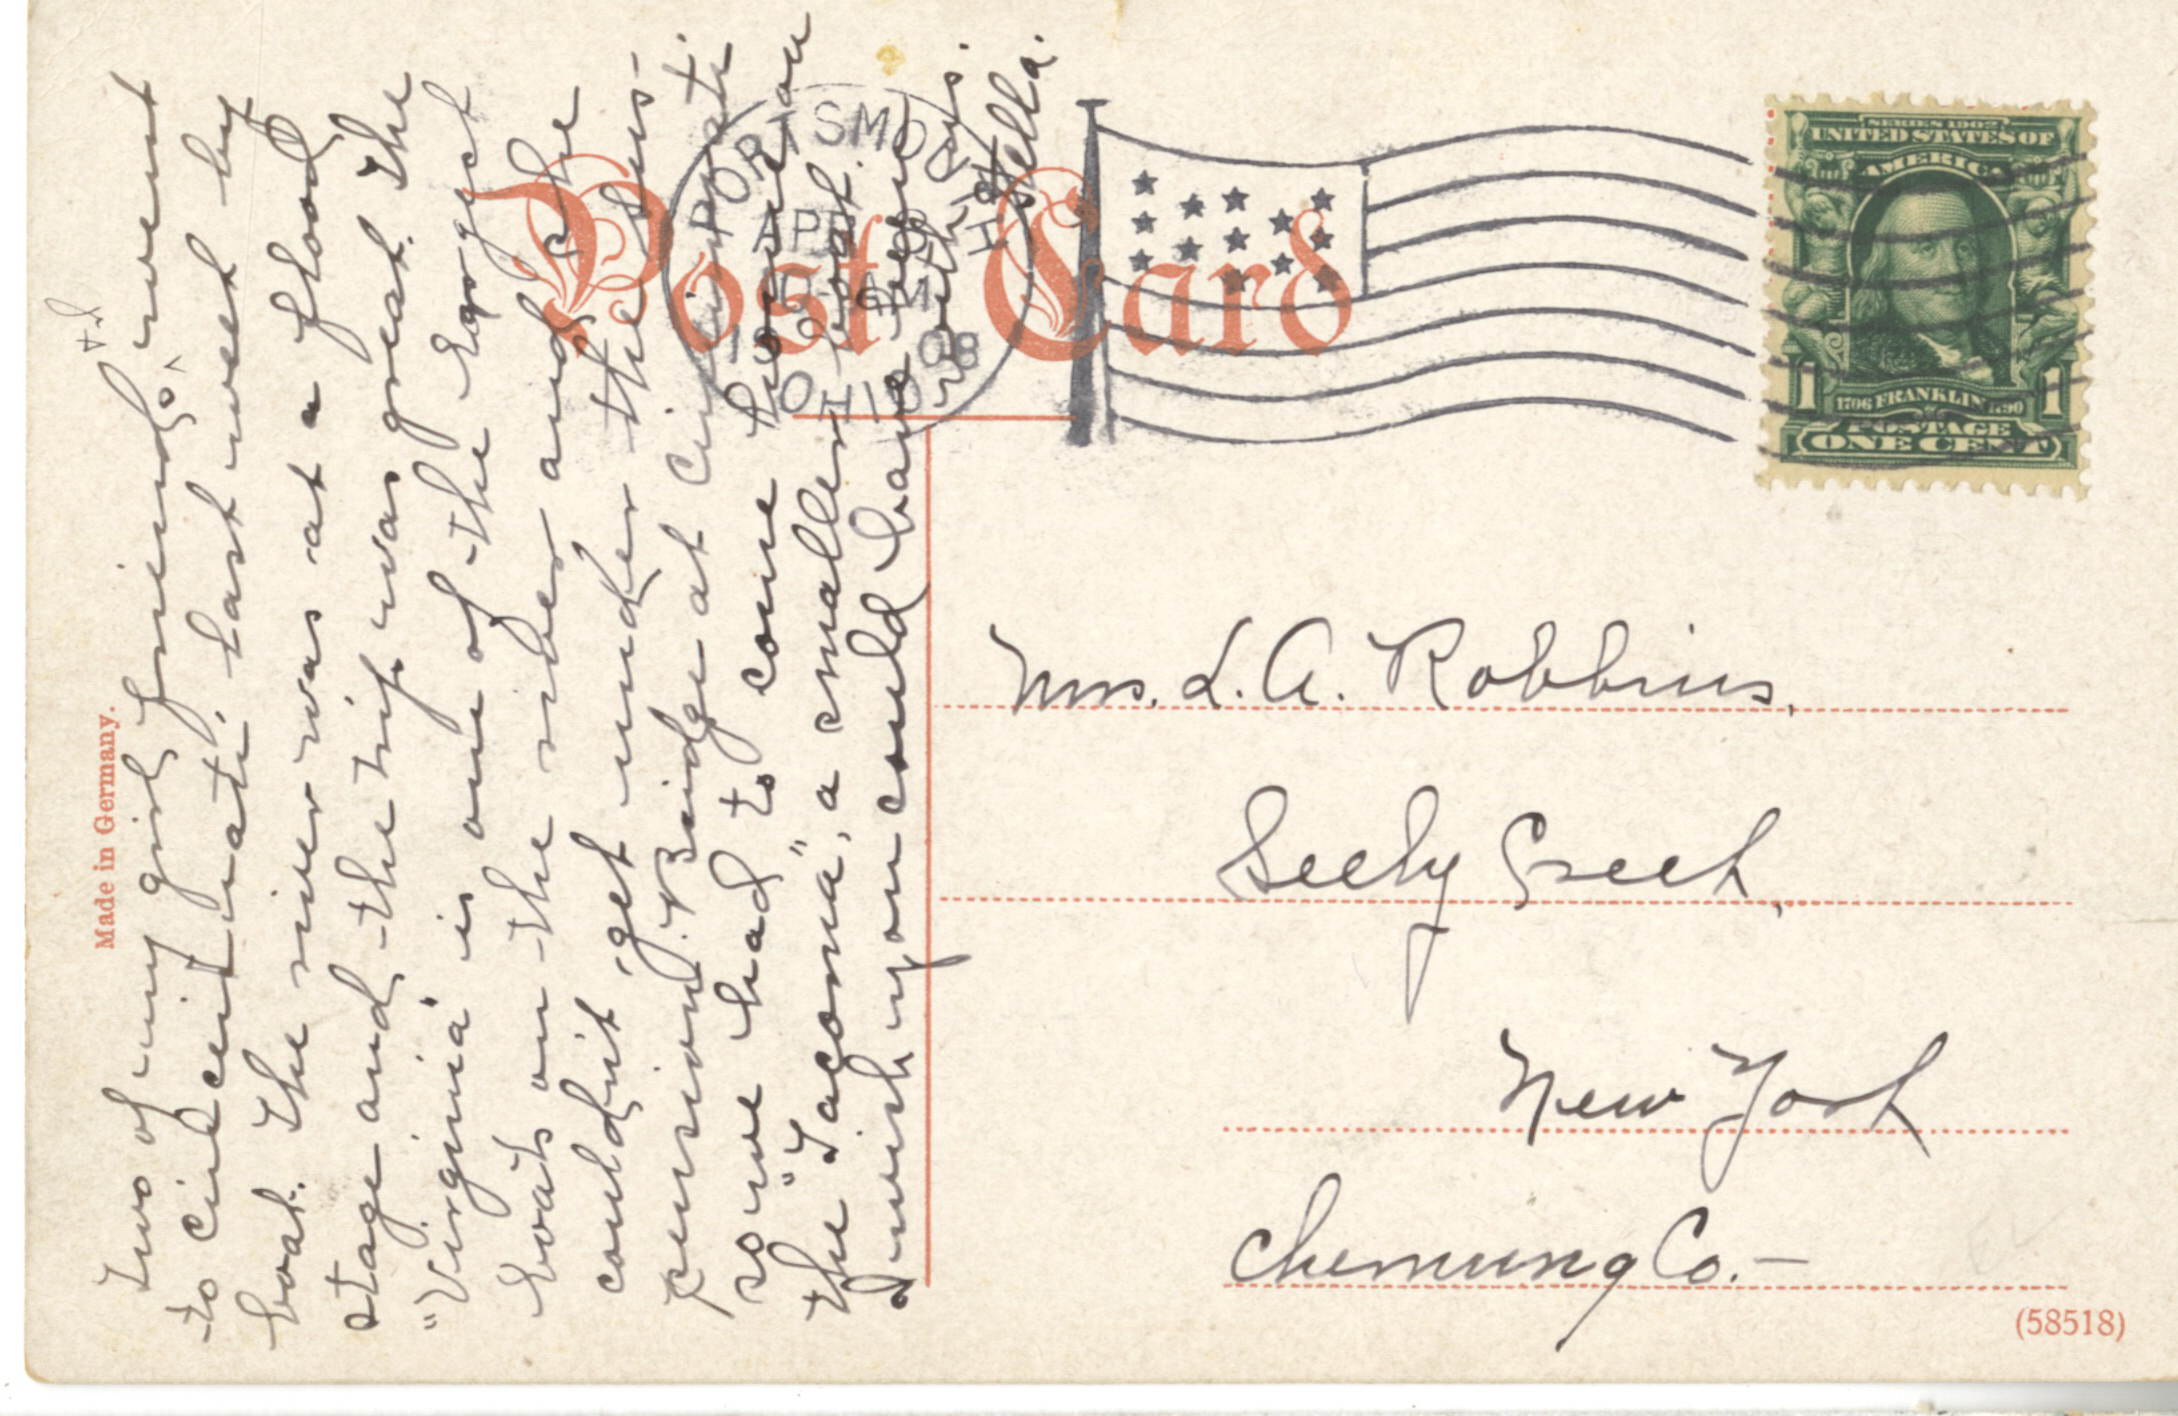 Made in Germany.
Two of my girl friends + I went
to Cincinnati last week by
boat. The river was at a flood
stage and the trip was great. The
"Virginia" is one of the largest
boats on the river and she
couldn't get under the Sus-
pension Bridge at Cincinnati
so we had to come home on
the "Tacoma", a smaller boat.
I wish you could have been with us.
Stella.
Post Card
PORTSMOUTH
APR
1908
OHIO
SERIES 1902
UNITED STATES OF
AMERICA
1 1706 FRANKLIN 1790 1
POSTAGE
ONE CENT
Mrs. L. A. Robbins,
Seely Creek,
New York
Chemung Co.-
(58518)